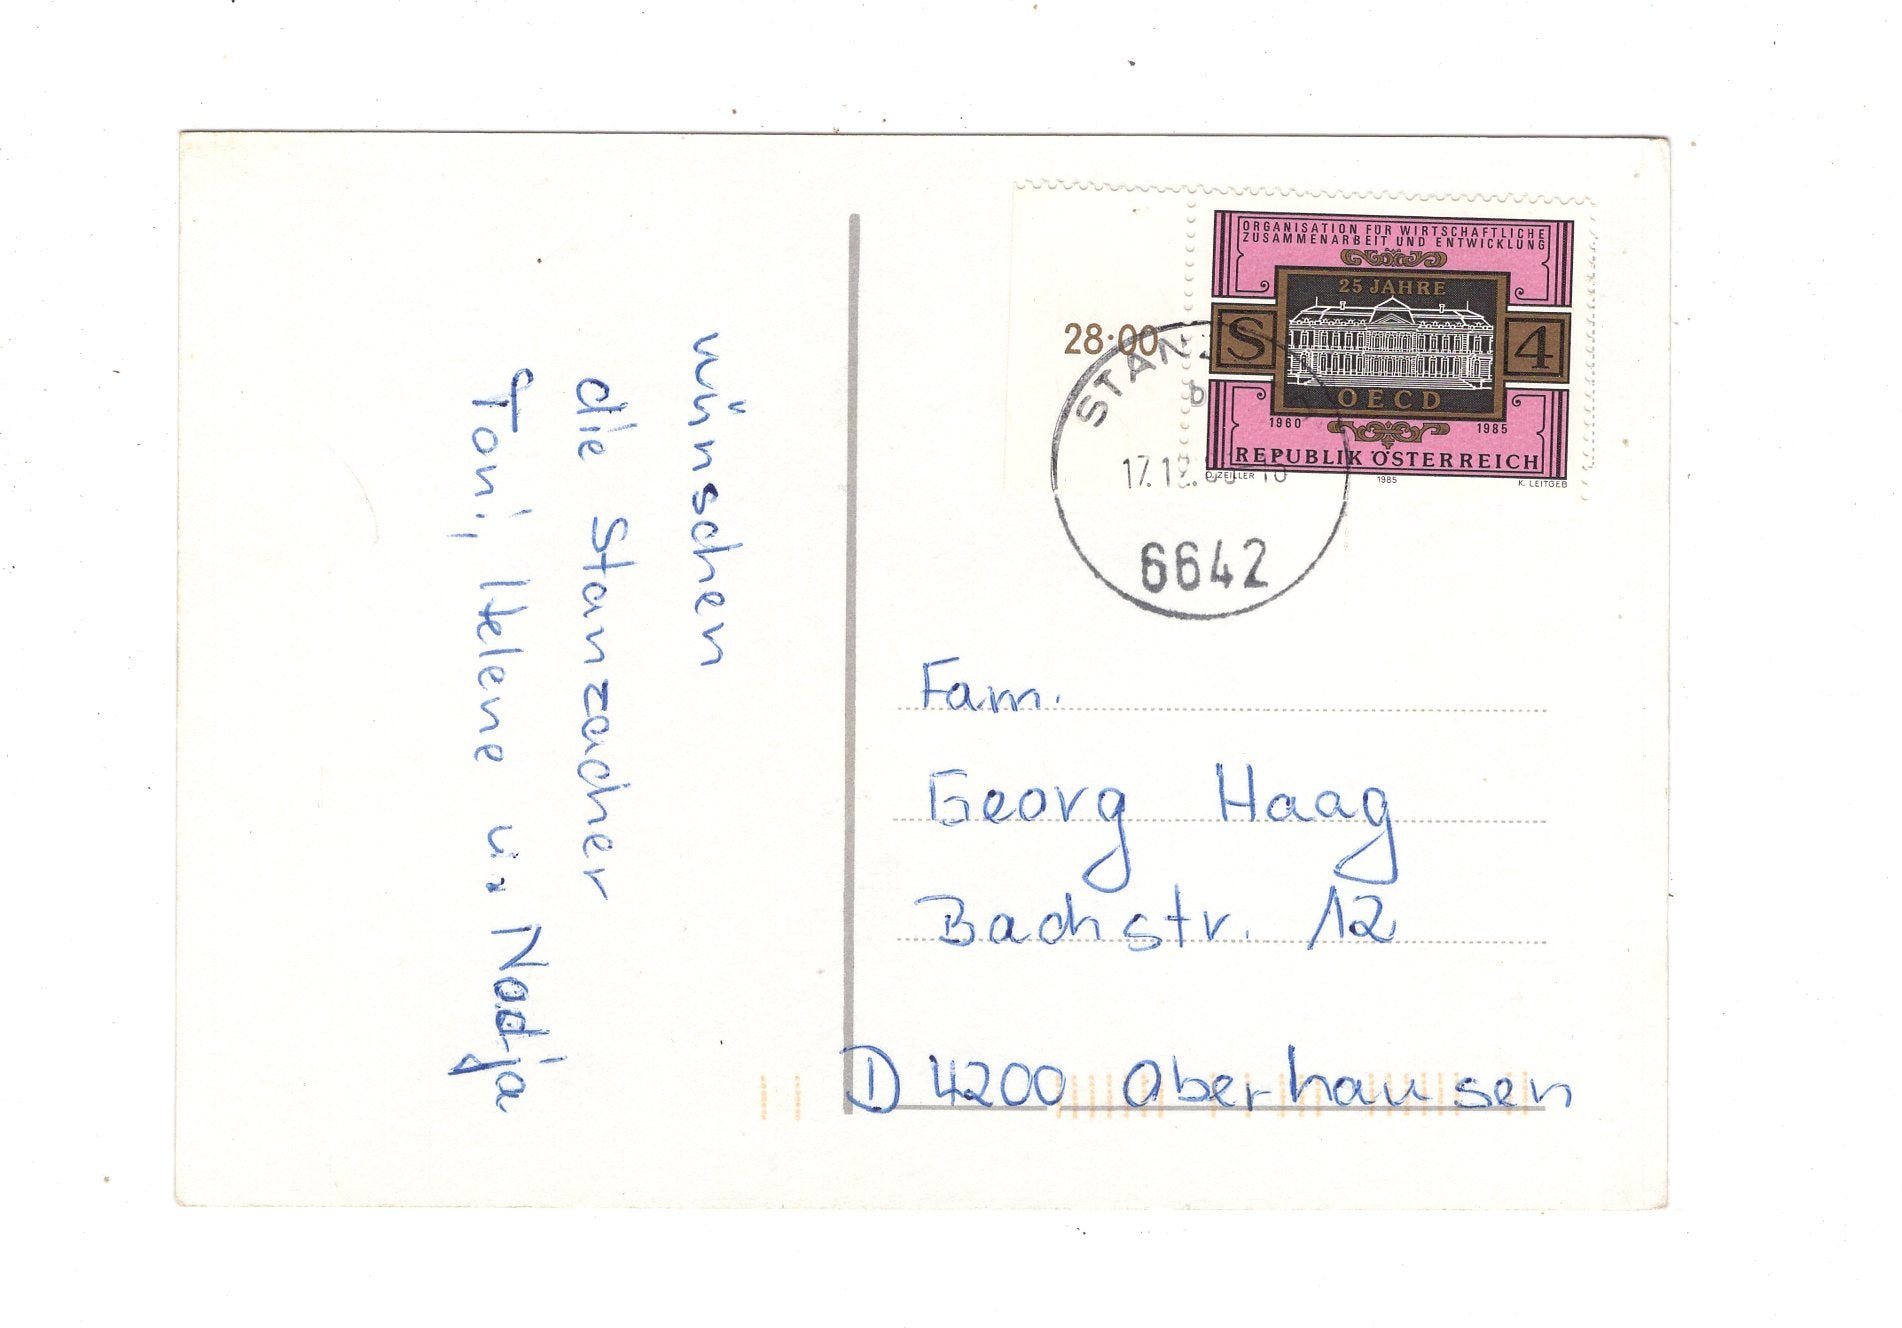 wünschen
die Stanzacher
Toni, Helene u. Nadja
28·00
ORGANISATION FÜR WIRTSCHAFTLICHE
ZUSAMMENARBEIT UND ENTWICKLUNG
25 JAHRE
S 4
OECD
1960 1985
REPUBLIK ÖSTERREICH
O. ZEILLER 1985 K. LEITGEB
b
6642
Fam.
Georg Haag
Bachstr. 12
D 4200 Oberhausen